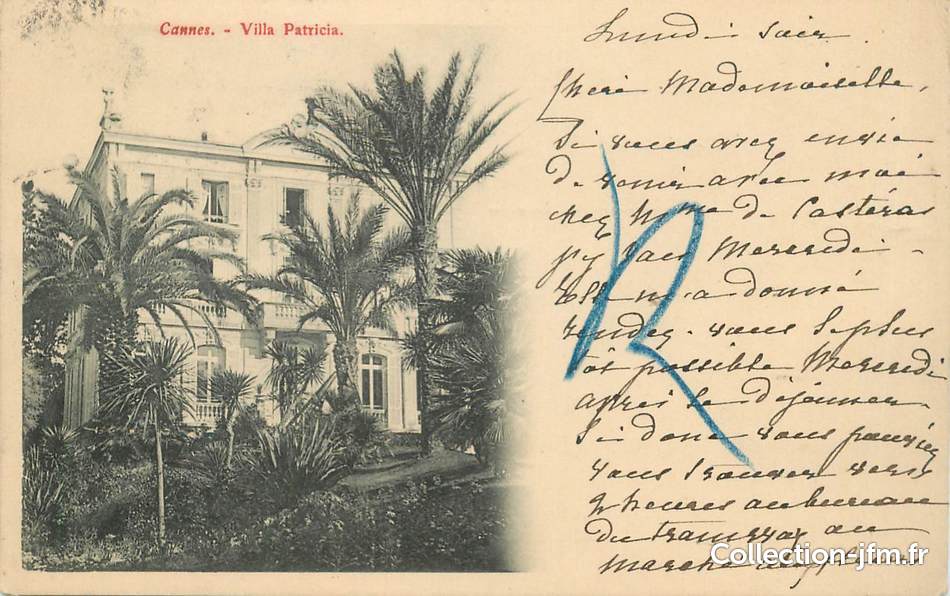 Cannes. - Villa Patricia.
Lundi soir.
Chère Mademoiselle,
Si vous avez envie
de venir avec moi
chez Mme de Castéras
j'y vais Mercredi -
Elle m'a donné
rendez-vous le plus
tôt possible Mercredi
après le déjeuner.
Si donc vous pouviez
vous trouver vers
2 heures au bureau
du tramway au
marché
R
Collection-jfm.fr